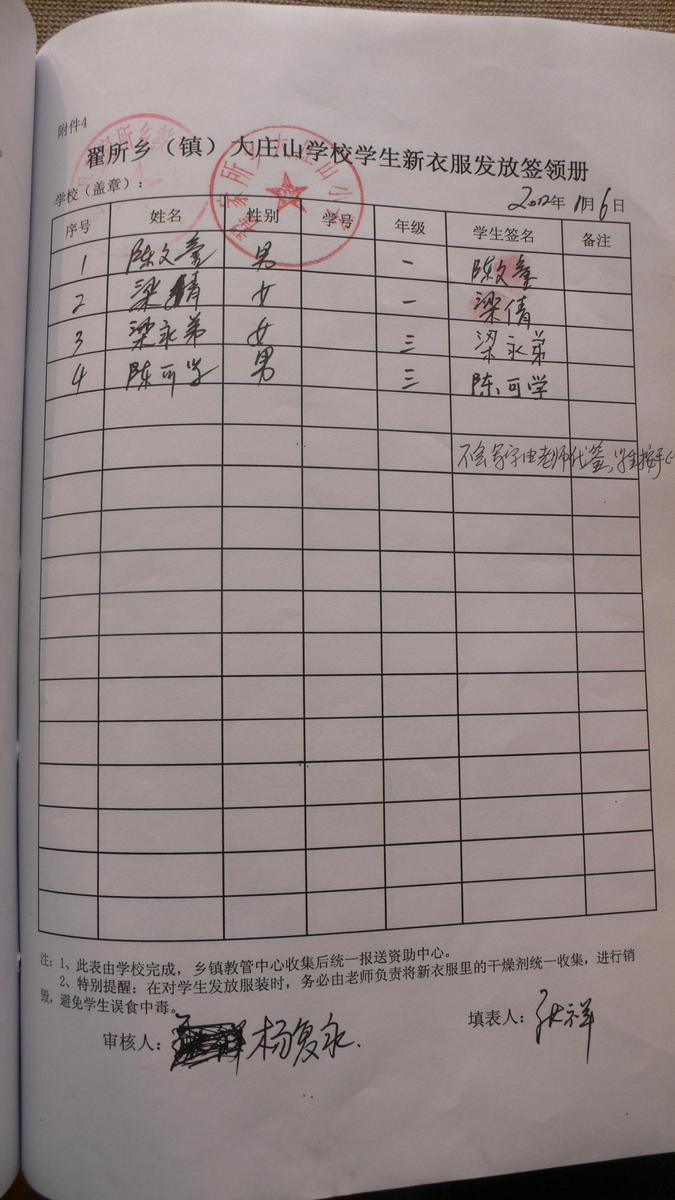 附件4
翟所乡（镇）大庄山学校学生新衣服发放签领册
学校（盖章）：
2012年 11月 6日
序号 姓名 性别 学号 年级 学生签名 备注
1 陈文奎 男 一 陈文奎
2 梁倩 女 一 梁倩
3 梁永弟 女 三 梁永弟
4 陈可学 男 三 陈可学
不会写字由老师代签,学生按手
注：1、此表由学校完成，乡镇教管中心收集后统一报送资助中心。
2、特别提醒：在对学生发放服装时，务必由老师负责将新衣服里的干燥剂统一收集，进行销
毁，避免学生误食中毒。
审核人：杨复永. 填表人：张祥